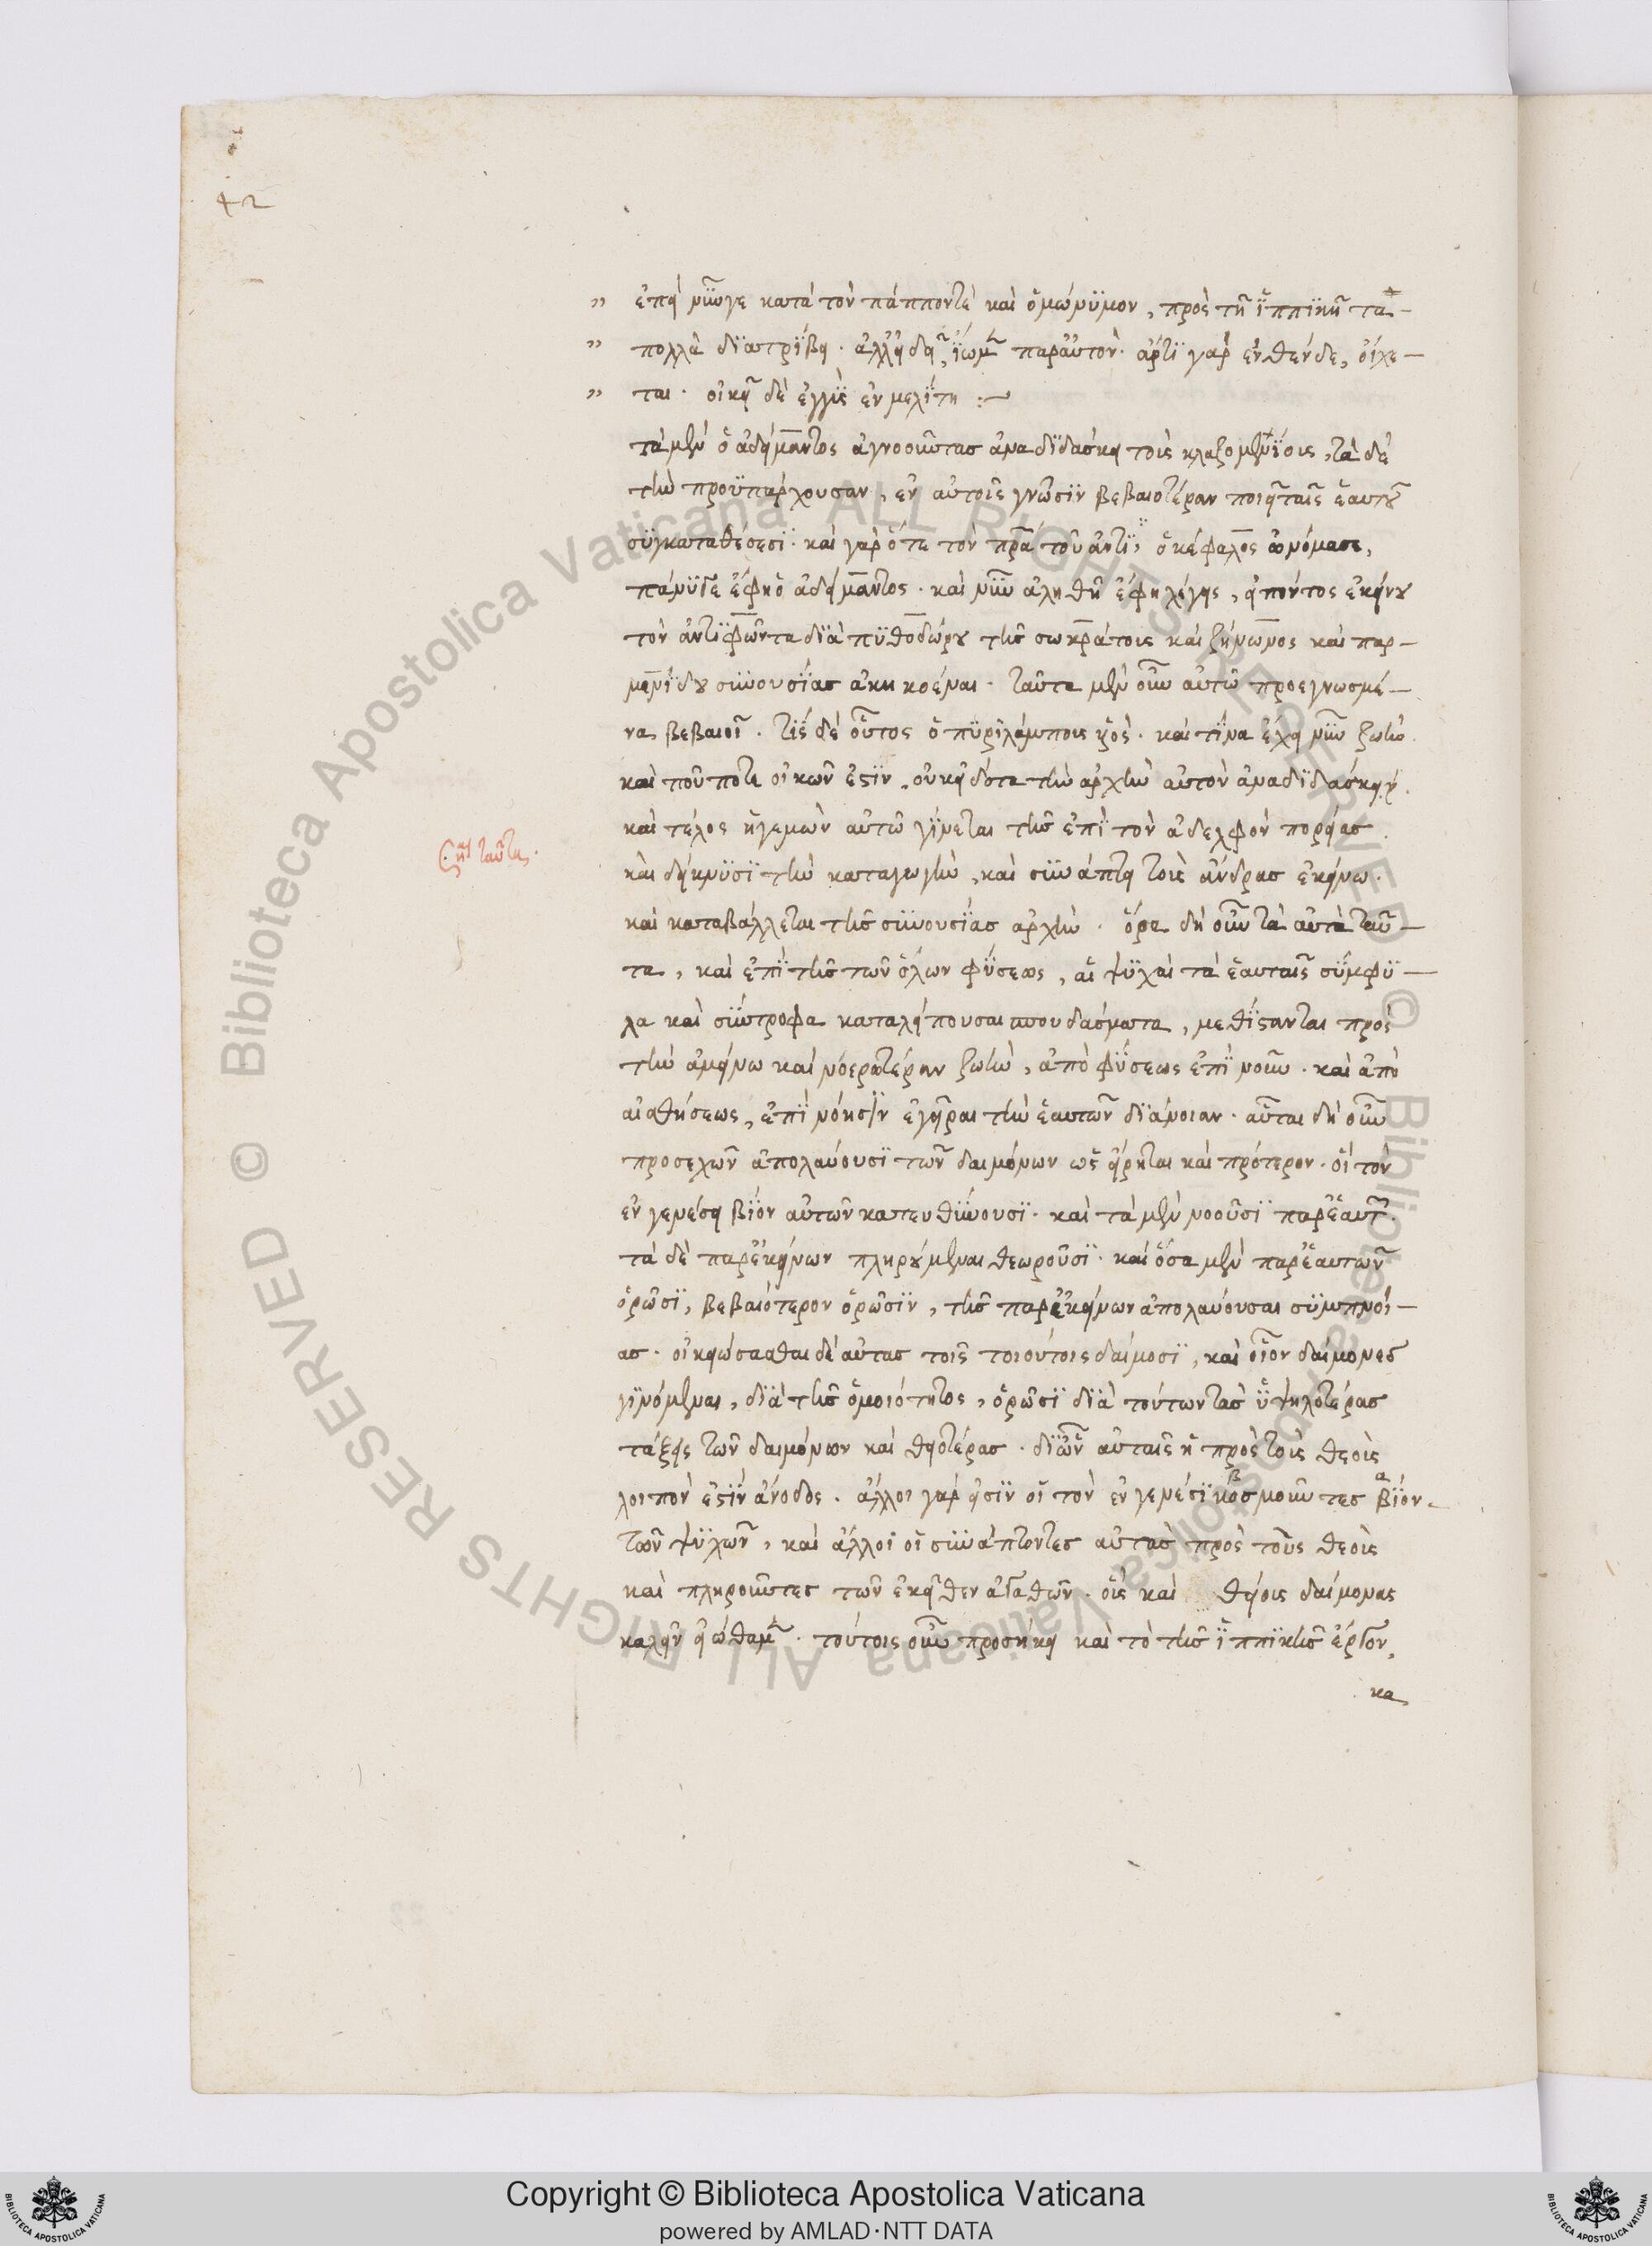 42
" ἐπεὶ νῦν γε κατὰ τὸν πάππον τὲ καὶ ὁμώνυμον, πρὸς τῇ ἱππικῇ τὰ
" πολλὰ διατρίβει. ἀλλ' εἰ δεῖ, ἴωμεν παρ' αὐτόν. ἄρτι γὰρ ἐνθένδε, οἴχε-
" ται. οἰκεῖ δὲ ἐγγὺς ἐν μελίτῃ :
τὰ μὲν ὁ ἀδείμαντος ἀγνοοῦντας ἀναδιδάσκει τοὺς κλαζομενίους, τὰ δὲ
τὴν προϋπάρχουσαν, ἐν αὐτοῖς γνῶσιν βεβαιοτέραν ποιεῖ ταῖς ἑαυτοῦ
συγκαταθέσεσι. καὶ γὰρ ὅτε τὸν πρα τοῦ ἀντι, ὁ κέφαλος ὠνόμασε,
πάνυ γε ἔφη ὁ ἀδείμαντος. καὶ νῦν ἀληθῆ ἔφη λέγεις, εἰπόντος ἐκείνου
τὸν ἀντιφῶντα διὰ πυθοδώρου τῆς σωκράτους καὶ ζήνωνος καὶ παρ-
μενίδου συνουσίας ἀκηκοέναι. ταῦτα μὲν οὖν αὐτῶ προεγνωσμέ-
να βεβαιοῖ. τίς δὲ οὗτος ὁ πυριλάμπους υἱός. καὶ τίνα ἔχει νῦν ζωὴν.
καὶ ποῦ ποτε οἰκῶν ἐστιν. οὐκ εἰδότα τὴν ἀρχὴν αὐτὸν ἀναδιδάσκει.
καὶ τέλος ἡγεμὼν αὐτῶ γίνεται τῆς ἐπὶ τὸν ἀδελφὸν πορείας.
καὶ δείκνυσι τὴν καταγωγὴν, καὶ συνάπτει τοὺς ἄνδρας ἐκείνω.
καὶ καταβάλλεται τῆς συνουσίας ἀρχὴν. ὅρα δὴ οὖν τὰ αὐτὰ ταῦ-
τα, καὶ ἐπὶ τῆς τῶν ὅλων φύσεως, αἱ ψυχαὶ τὰ ἑαυταῖς σύμφυ-
λα καὶ σύντροφα καταλείπουσαι σπουδάσματα, μεθίστανται πρὸς
τὴν ἀμείνω καὶ νοερωτέραν ζωὴν, ἀπὸ φύσεως ἐπὶ νοῦν. καὶ ἀπὸ
αἰσθήσεως, ἐπὶ νόησιν ἐγεῖραι τὴν ἑαυτῶν διάνοιαν. αὗται δὴ οὖν
προσεχῶν ἀπολαύουσι τῶν δαιμόνων ὡς εἴρηται καὶ πρότερον. οἳ τὸν
ἐν γενέσει βίον αὐτῶν κατευθύνουσι. καὶ τὰ μὲν νοοῦσι παρ' ἑαυτῶν.
τὰ δὲ παρ' ἐκείνων πληρούμεναι θεωροῦσι. καὶ ὅσα μὲν παρ' ἑαυτῶν
ὁρῶσι, βεβαιότερον ὁρῶσιν, τῆς παρ' ἐκείνων ἀπολαύουσαι συμπνοί-
ας. οἰκειώσασθαι δὲ αὐτὰς τοῖς τοιούτοις δαίμοσι, καὶ οἷον δαίμονες
γινόμεναι, διὰ τῆς ὁμοιότητος, ὁρῶσι διὰ τούτων τὰς ὑψηλοτέρας
τάξεις τῶν δαιμόνων καὶ θειοτέρας. δι' ὧν αὐταῖς ἡ πρὸς τοὺς θεοὺς
λοιπόν ἐστιν ἄνοδος. ἄλλοι γάρ εἰσιν οἱ τὸν ἐν γενέσι κοσμοῦντες βίον
τῶν ψυχῶν, καὶ ἄλλοι οἱ συνάπτοντες αὐτὰς πρὸς τοὺς θεοὺς
καὶ πληροῦντες τῶν ἐκεῖθεν ἀγαθῶν. οὓς καὶ θείους δαίμονας
καλεῖν εἰώθαμεν. τούτοις οὖν προσήκει καὶ τὸ τῆς ἱππικῆς ἔργον,
κα
Copyright © Biblioteca Apostolica Vaticana
powered by AMLAD·NTT DATA